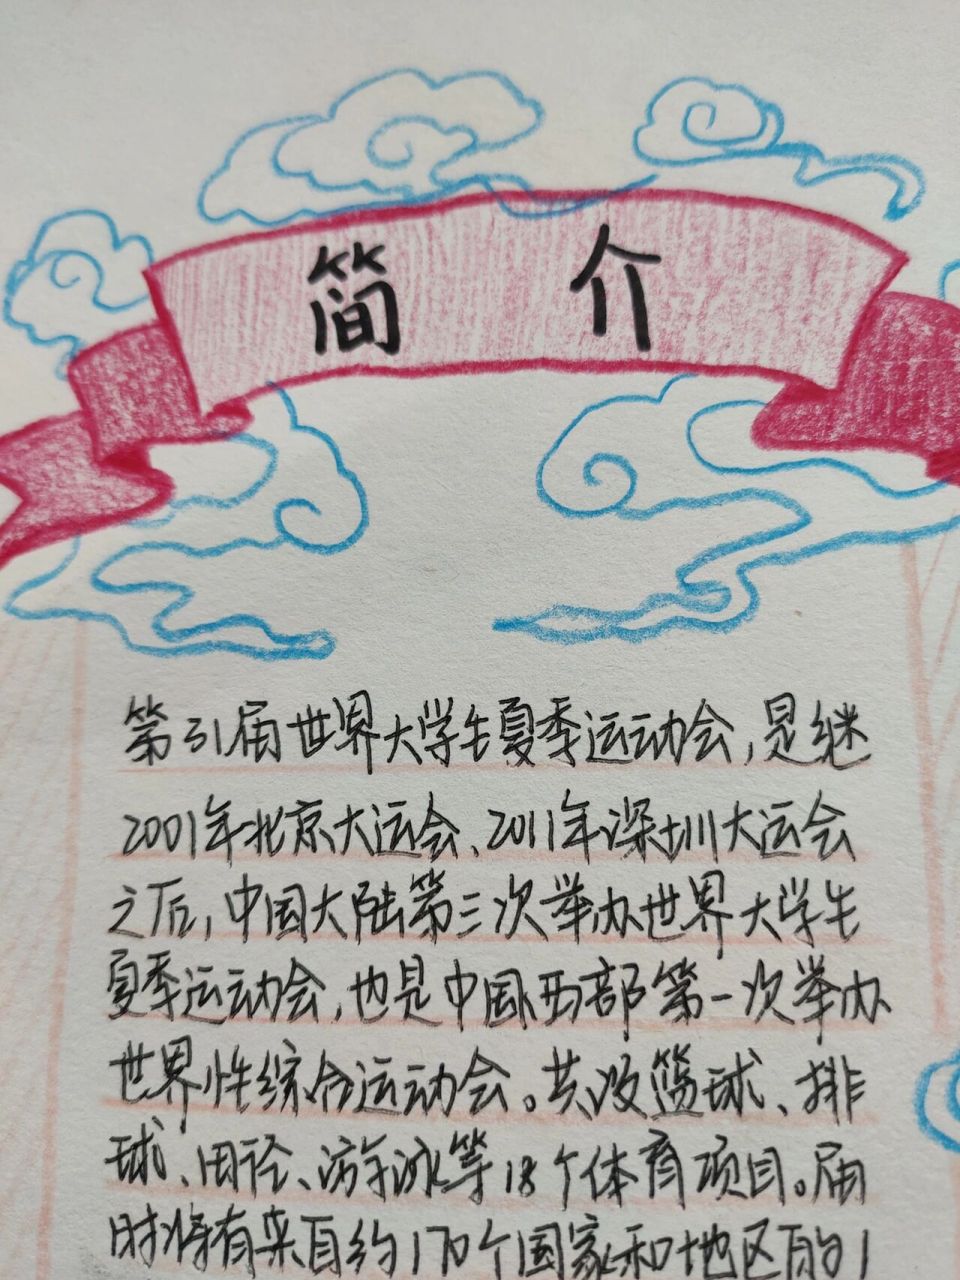 简 介
第31届世界大学生夏季运动会,是继
2001年北京大运会、2011年深圳大运会
之后,中国大陆第三次举办世界大学生
夏季运动会,也是中国西部第一次举办
世界性综合运动会。共设篮球、排
球、田径、游泳等18个体育项目。届
时将有来自约170个国家和地区的1